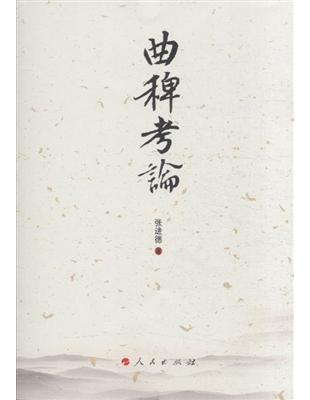 曲稗考論
张进德
人民出版社